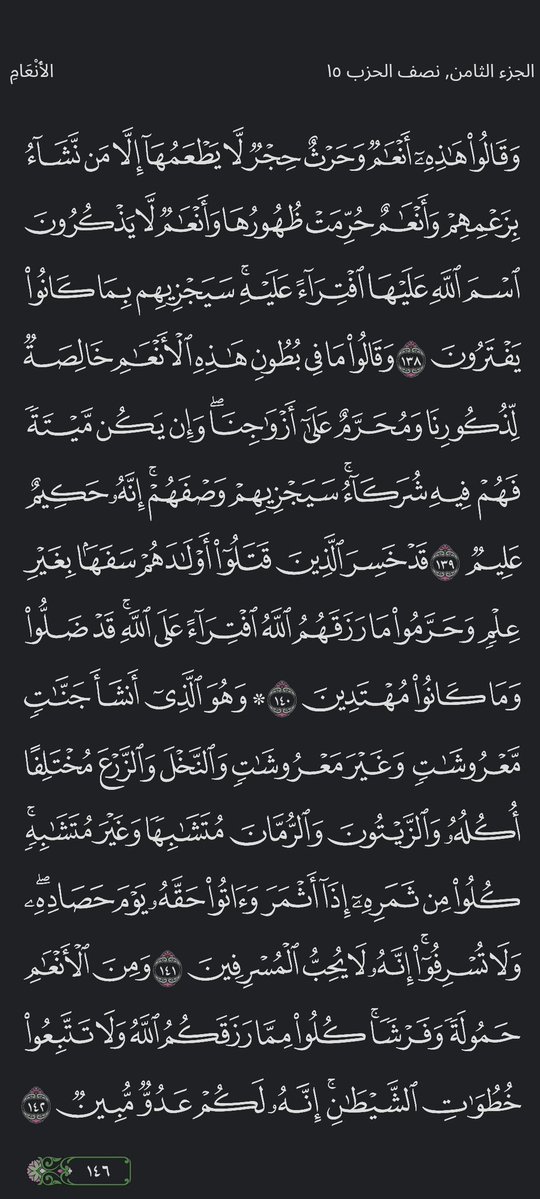 الجزء الثامن, نصف الحزب ١٥
الأنْعَامِ
وَقَالُوا۟ هَـٰذِهِۦٓ أَنْعَـٰمٌ وَحَرْثٌ حِجْرٌ لَّا يَطْعَمُهَآ إِلَّا مَن نَّشَآءُ
بِزَعْمِهِمْ وَأَنْعَـٰمٌ حُرِّمَتْ ظُهُورُهَا وَأَنْعَـٰمٌ لَّا يَذْكُرُونَ
ٱسْمَ ٱللَّهِ عَلَيْهَا ٱفْتِرَآءً عَلَيْهِ ۚ سَيَجْزِيهِم بِمَا كَانُوا۟
يَفْتَرُونَ ١٣٨ وَقَالُوا۟ مَا فِى بُطُونِ هَـٰذِهِ ٱلْأَنْعَـٰمِ خَالِصَةٌ
لِّذُكُورِنَا وَمُحَرَّمٌ عَلَىٰٓ أَزْوَٰجِنَا ۖ وَإِن يَكُن مَّيْتَةً
فَهُمْ فِيهِ شُرَكَآءُ ۚ سَيَجْزِيهِمْ وَصْفَهُمْ ۚ إِنَّهُۥ حَكِيمٌ
عَلِيمٌ ١٣٩ قَدْ خَسِرَ ٱلَّذِينَ قَتَلُوٓا۟ أَوْلَـٰدَهُمْ سَفَهًۢا بِغَيْرِ
عِلْمٍ وَحَرَّمُوا۟ مَا رَزَقَهُمُ ٱللَّهُ ٱفْتِرَآءً عَلَى ٱللَّهِ ۚ قَدْ ضَلُّوا۟
وَمَا كَانُوا۟ مُهْتَدِينَ ١٤٠ ۞ وَهُوَ ٱلَّذِىٓ أَنشَأَ جَنَّـٰتٍ
مَّعْرُوشَـٰتٍ وَغَيْرَ مَعْرُوشَـٰتٍ وَٱلنَّخْلَ وَٱلزَّرْعَ مُخْتَلِفًا
أُكُلُهُۥ وَٱلزَّيْتُونَ وَٱلرُّمَّانَ مُتَشَـٰبِهًا وَغَيْرَ مُتَشَـٰبِهٍ ۚ
كُلُوا۟ مِن ثَمَرِهِۦٓ إِذَآ أَثْمَرَ وَءَاتُوا۟ حَقَّهُۥ يَوْمَ حَصَادِهِۦ ۖ
وَلَا تُسْرِفُوٓا۟ ۚ إِنَّهُۥ لَا يُحِبُّ ٱلْمُسْرِفِينَ ١٤١ وَمِنَ ٱلْأَنْعَـٰمِ
حَمُولَةً وَفَرْشًا ۚ كُلُوا۟ مِمَّا رَزَقَكُمُ ٱللَّهُ وَلَا تَتَّبِعُوا۟
خُطُوَٰتِ ٱلشَّيْطَـٰنِ ۚ إِنَّهُۥ لَكُمْ عَدُوٌّ مُّبِينٌ ١٤٢
١٤٦